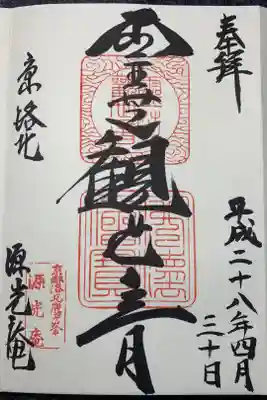 奉拝
平成二十八年四月
三十日
霊芝観世音
京洛北
源光庵
京都洛北鷹峯
源光庵